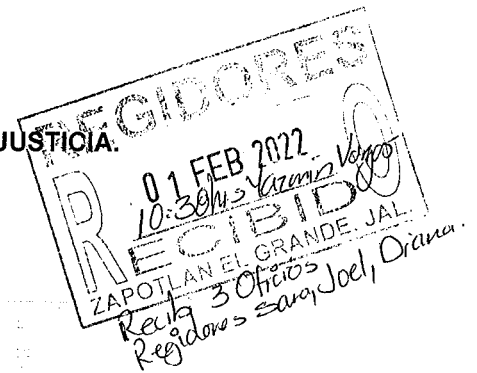 JUSTICIA.
REGIDORES
01 FEB 2022
10:30hrs Yazmin
RECIBIDO
ZAPOTLAN EL GRANDE, JAL.
Recibo 3 Oficios
Regidores Sara, Joel, Diana.